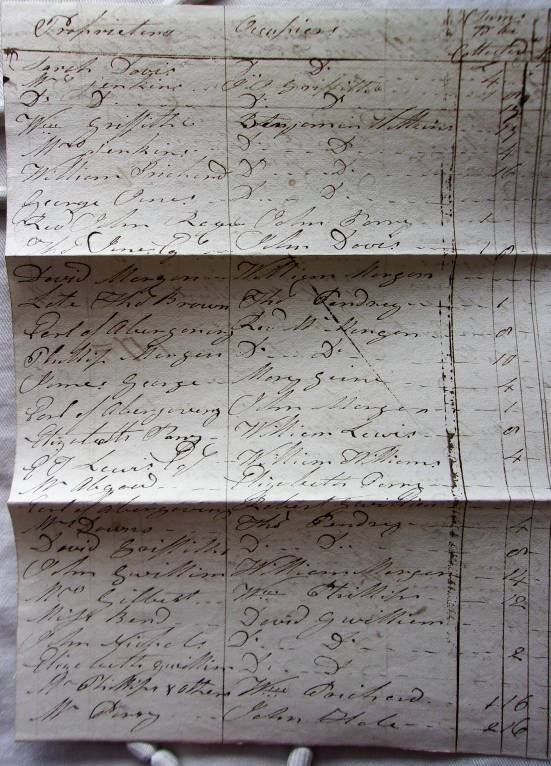 Proprietors Occupiers Sums to be Collected
Sarah Davis Do Do
Mrs Jenkins Griffiths
Do Do Do Do
Wm Griffiths Benjamin Watkins
Mrs Jenkins Do Do
William Prichard Do Do 16
George Jones Do Do
Revd John John Parry 1
Thos Jones Esqr John Davis 1 8
David Morgan William Morgan
Late Thos Brown Thos Pendrey 1
Earl of Abergaveny Revd Mr Morgan 8
Phillip Morgan Do Do 10
James George Mary 4
Earl of Abergaveny John Morgan 1
Elizabeth Parry William Lewis 8
Lewis Esqr William Williams 4
Mr Elizabeth Parry
Earl of Abergaveny Robert
Mrs Downs Thos Pendrey 4
David Griffiths Do Do 8
John Gwilliam William Morgan 14
Mrs Gilbert Wm Phillips 12
Miss Bend David Gwilliam
John Nichols Do Do 2
Elizabeth Gwilliam Do Do
Mr Phillips & others Wm Prichard 1 16
Mr Parry John 2 16